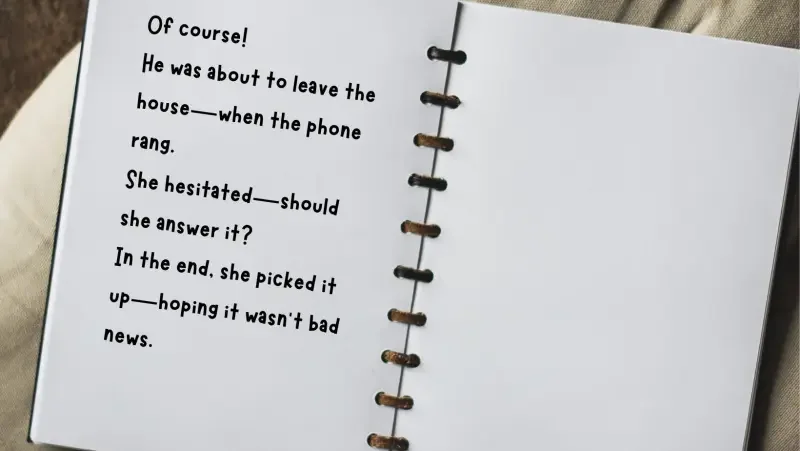 Of course!
He was about to leave the
house—when the phone
rang.
She hesitated—should
she answer it?
In the end, she picked it
up—hoping it wasn't bad
news.